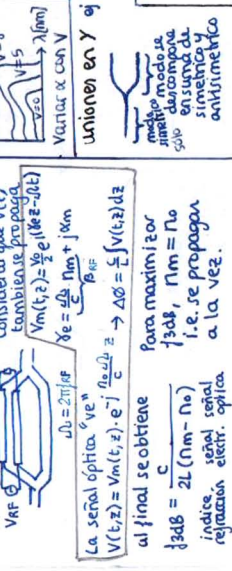 VRF
considera que V(t)
también se propaga
Vm(t,z) = V₀/2 e^j(γe z-Ωt)
γe = Ω/c nm + jαm
βRF
Ω = 2π fRF
La señal óptica "ve"
V(t,z) = Vm(t,z) · e^-j (n₀Ω/c) z → ΔΦ = ∫V(t,z)dz
al final se obtiene
f3dB = c / 2L (nm - no)
índice refracción
señal electr.
señal óptica
Para maximizar
f3dB, nm = no
i.e. se propagan
a la vez.
V=5
V=0
λ[nm]
Variar α con V
uniones en Y
modo simétrico sólo
modo se descompone en suma de simétrico y antisimétrico